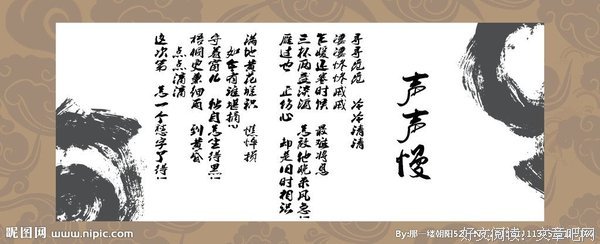 声声慢
寻寻觅觅 冷冷清清
凄凄惨惨戚戚
乍暖还寒时候 最难将息
三杯两盏淡酒 怎敌他晚来风急!
雁过也 正伤心 却是旧时相识
满地黄花堆积 憔悴损
如今有谁堪摘!
守着窗儿 独自怎生得黑!
梧桐更兼细雨 到黄昏
点点滴滴
这次第 怎一个愁字了得!
昵图网 www.nipic.com
By:那一缕朝阳
好文阅读-文章吧网